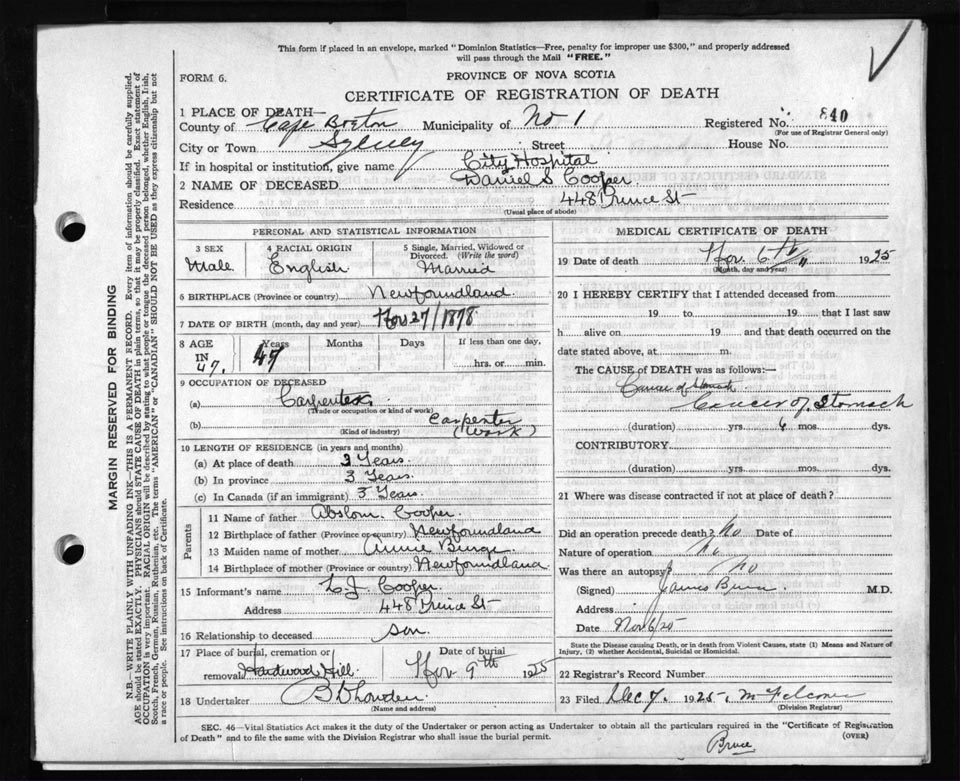 This form if placed in an envelope, marked "Dominion Statistics—Free, penalty for improper use $300," and properly addressed
will pass through the Mail "FREE."
FORM 6.
PROVINCE OF NOVA SCOTIA
CERTIFICATE OF REGISTRATION OF DEATH
1 PLACE OF DEATH—
County of Cape Breton Municipality of No 1 Registered No. 840
(For use of Registrar General only)
City or Town Sydney Street House No.
If in hospital or institution, give name City Hospital
2 NAME OF DECEASED Daniel S Cooper.
Residence 448 Prince St
(Usual place of abode)
PERSONAL AND STATISTICAL INFORMATION
3 SEX Male. 4 RACIAL ORIGIN English 5 Single, Married, Widowed or Divorced. (Write the word) Married
6 BIRTHPLACE (Province or country) Newfoundland.
7 DATE OF BIRTH (month, day and year) Nov 27/1878
8 AGE IN 47. Years 47 Months Days If less than one day, hrs. or min.
9 OCCUPATION OF DECEASED
(a) Carpenter
(Trade or occupation or kind of work)
(b) Carpenter (Work)
(Kind of industry)
10 LENGTH OF RESIDENCE (in years and months)
(a) At place of death 3 Years.
(b) In province 3 Years.
(c) In Canada (if an immigrant) 3 Years.
Parents
11 Name of father Abslom. Cooper.
12 Birthplace of father (Province or country) Newfoundland
13 Maiden name of mother Annie
14 Birthplace of mother (Province or country) Newfoundland
15 Informant's name Cooper.
Address 448 Prince St
16 Relationship to deceased son.
17 Place of burial, cremation or removal Hardwood Hill Date of burial Nov 9th 1925
18 Undertaker
(Name and address)
MEDICAL CERTIFICATE OF DEATH
19 Date of death Nov. 6th 1925
(Month, day and year)
20 I HEREBY CERTIFY that I attended deceased from
19 to 19 that I last saw
h alive on 19 and that death occurred on the
date stated above, at m.
The CAUSE OF DEATH was as follows:—
Cancer of Stomach
Cancer of Stomach
(duration) yrs. 6 mos. dys.
CONTRIBUTORY.
(duration) yrs. mos. dys.
21 Where was disease contracted if not at place of death?
Did an operation precede death? No Date of
Nature of operation No
Was there an autopsy? No
(Signed) James M.D.
Address
Date Nov 6/25
State the Disease causing Death, or in death from Violent Causes, state (1) Means and Nature of
Injury, (2) whether Accidental, Suicidal or Homicidal.
22 Registrar's Record Number
23 Filed Dec 7. 1925,
(Division Registrar)
SEC. 46—Vital Statistics Act makes it the duty of the Undertaker or person acting as Undertaker to obtain all the particulars required in the "Certificate of Registration
of Death" and to file the same with the Division Registrar who shall issue the burial permit.
(OVER)
Bruce
MARGIN RESERVED FOR BINDING
N.B.—WRITE PLAINLY WITH UNFADING INK—THIS IS A PERMANENT RECORD. Every item of information should be carefully supplied.
AGE should be stated EXACTLY. PHYSICIANS should STATE CAUSE OF DEATH in plain terms, so that it may be properly classified. Exact statement of
OCCUPATION is very important. RACIAL ORIGIN will be described by stating to what people or tongue the deceased person belonged, whether English, Irish,
Scotch, French, German, Russian, Ruthenian, etc. The terms "AMERICAN" or "CANADIAN" SHOULD NOT BE USED as they express citizenship but not
a race or people. See instructions on back of Certificate.